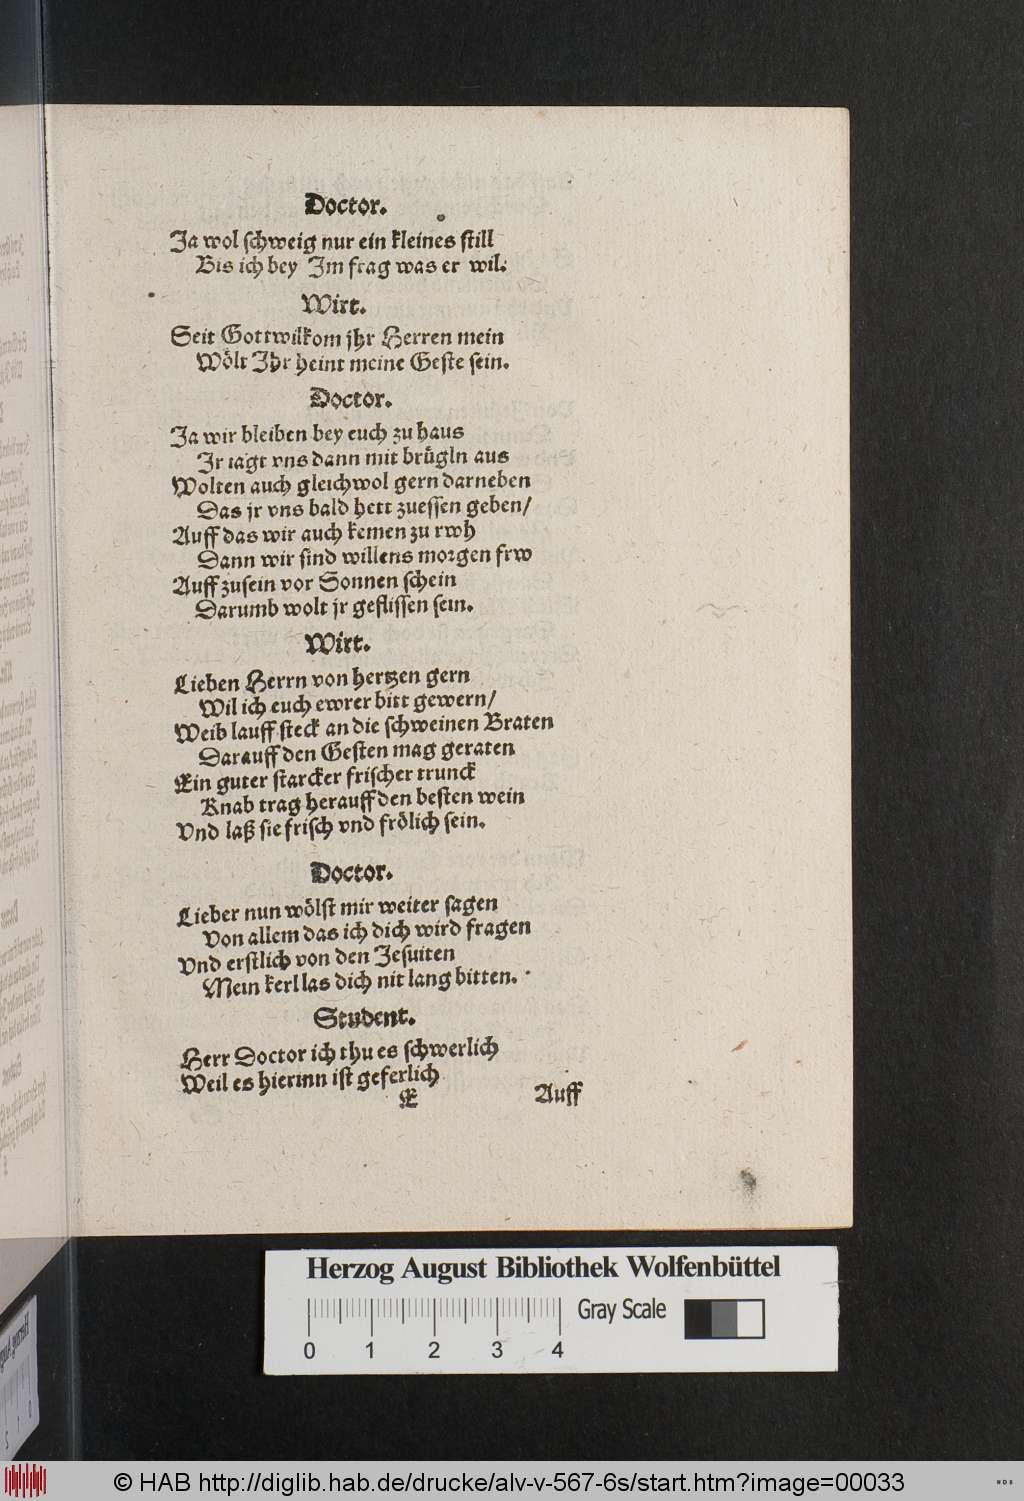 Doctor.
Ja wol schweig nur ein kleines still
Bis ich bey Im frag was er wil.
Wirt.
Seit Gottwilkom jhr Herren mein
Wölt Ihr heint meine Geste sein.
Doctor.
Ja wir bleiben bey euch zu haus
Ir iagt vns dann mit brügln aus
Wolten auch gleichwol gern darneben
Das jr vns bald hett zuessen geben/
Auff das wir auch kemen zu rwh
Dann wir sind willens morgen frw
Auff zusein vor Sonnen schein
Darumb wolt jr geflissen sein.
Wirt.
Lieben Herrn von hertzen gern
Wil ich euch ewrer bitt gewern/
Weib lauff steck an die schweinen Braten
Darauff den Gesten mag geraten
Ein guter starcker frischer trunck
Knab trag herauff den besten wein
Vnd laß sie frisch vnd frölich sein.
Doctor.
Lieber nun wölst mir weiter sagen
Von allem das ich dich wird fragen
Vnd erstlich von den Jesuiten
Mein kerl las dich nit lang bitten.
Student.
Herr Doctor ich thu es schwerlich
Weil es hierinn ist geferlich
E Auff
Herzog August Bibliothek Wolfenbüttel
Gray Scale
0 1 2 3 4
© HAB http://diglib.hab.de/drucke/alv-v-567-6s/start.htm?image=00033